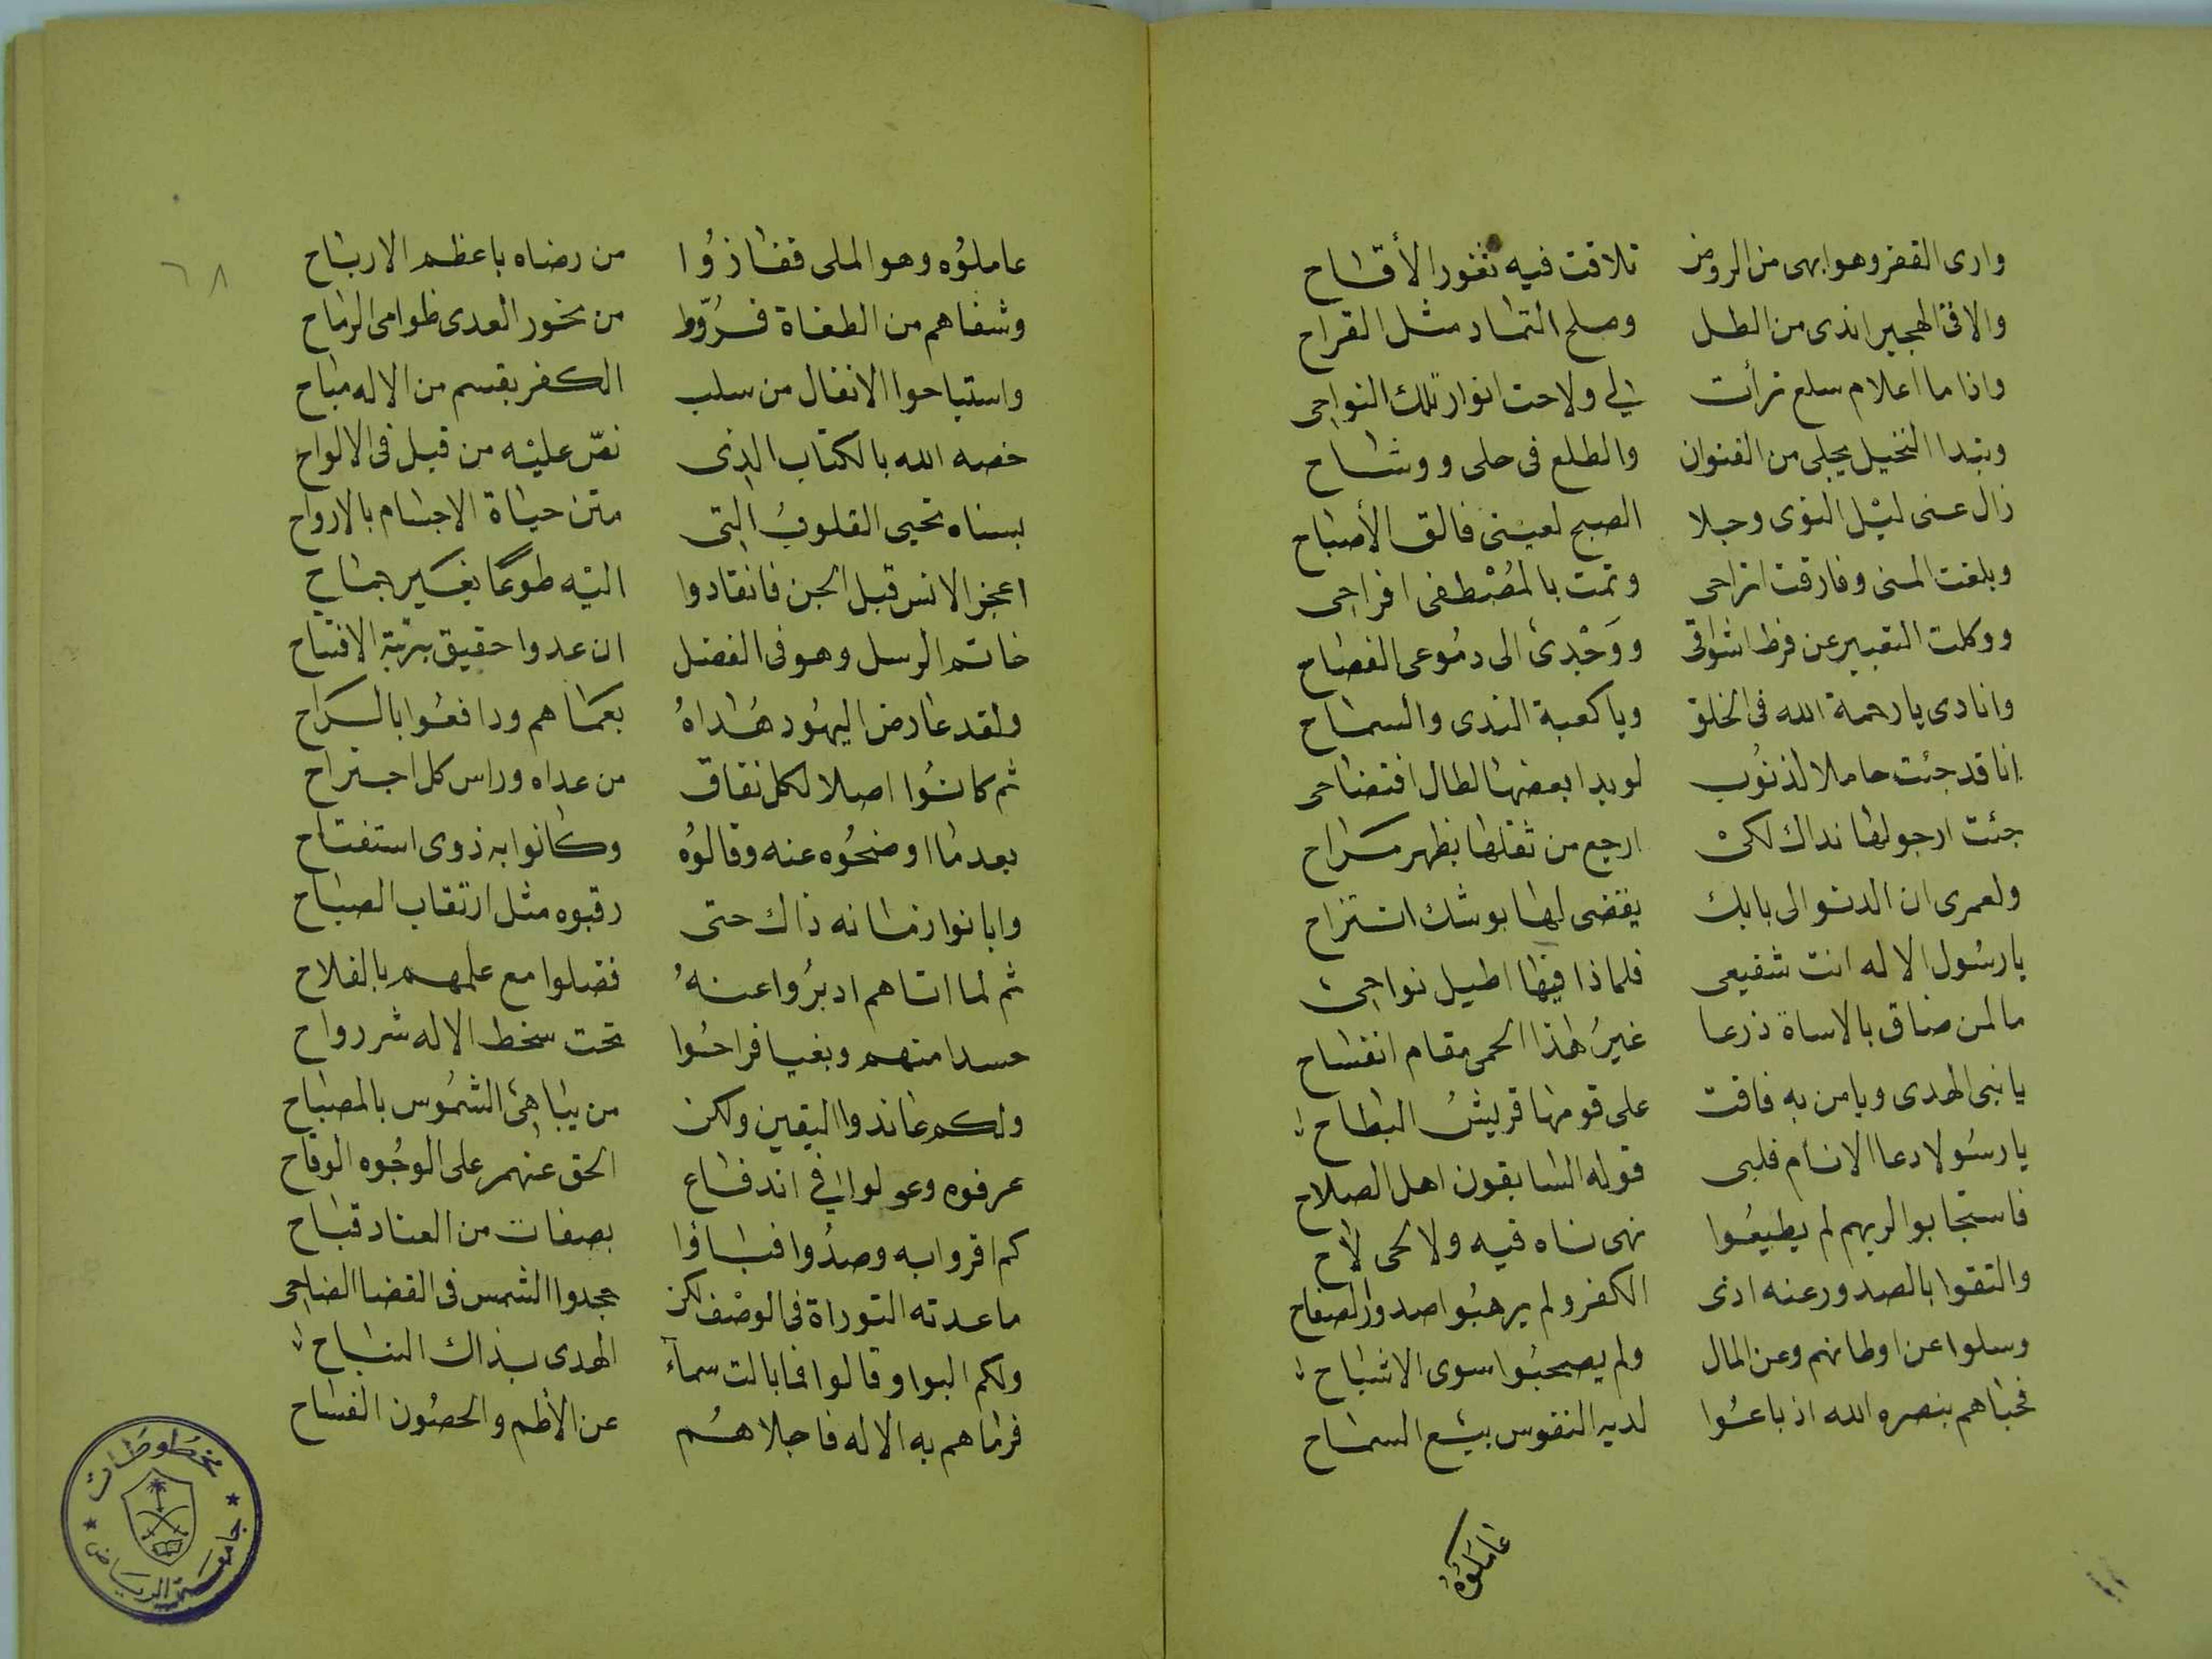 وارى القفر وهو ابهى من الروض تلاقت فيه ثغور الأقاح
والاقى الهجير اندى من الطل وملح الثماد مثل القراح
واذا ما اعلام سلع ترأت لي ولاحت انوار تلك النواحى
وبتدا النخيل يجلى من القنوان والطلع فى حلى ووشاح
زال عنى ليل النوى وجلا الصبح لعينى فالق الأصباح
وبلغت المنى وفارقت اتراحى وتمت بالمصطفى افراحى
ووكلت التعبير عن فرط اشواقى ووجدى الى دموعى الفصاح
وانادى يا رحمة الله فى الخلق ويا كعبة الندى والسماح
انا قد جئت حاملا لذنوب لو بدا بعضها لطال افتضاحى
جئت ارجو لها نداك لكى ارجع من ثقلها بظهر مراح
ولعمرى ان الدنو الى بابك يقضى لها بوشك انتزاح
يا رسول الاله انت شفيعى فلماذا فيها اطيل نواحى
ما لمن ضاق بالاساة ذرعا غير هذا الحمى مقام انفساح
يا نبى الهدى ويا من به فاقت على قومها قريش البطاح
يا رسولا دعا الانام فلبى قوله السابقون اهل الصلاح
فاستجابوا لربهم لم يطيعوا نهى ناه فيه ولا لحى لاح
والتقوا بالصدور عنه اذى الكفر ولم يرهبوا صدور الصفاح
وسلوا عن اوطانهم وعن المال ولم يصحبوا سوى الاشباح
فحباهم بنصره الله اذ باعوا لديه النفوس بيع السماح
عاملوه
عاملوه وهو الملى ففازوا من رضاه باعظم الارباح
وشفاهم من الطغاة فروّوا من نحور العدى ظوامى الرماح
واستباحوا الانفال من سلب الكفر بقسم من الاله مباح
خصه الله بالكتاب الذى نص عليه من قبل فى الالواح
بسناه تحيى القلوب التى منن حياة الاجسام بالارواح
اعجز الانس قبل الجن فانقادوا اليه طوعا بغير جماح
خاتم الرسل وهو فى الفضل ان عدوا حقيق برتبة الافتتاح
ولقد عارض اليهود هداه بعماهم ودافعوا بالراح
ثم كانوا اصلا لكل نفاق من عداه وراس كل اجتراح
بعد ما اوضحوه عنه وقالوه وكانوا به ذوى استفتاح
وابانوا زمانه ذاك حتى رقبوه مثل ارتقاب الصباح
ثم لما اتاهم ادبروا عنه فضلوا مع علمهم بالفلاح
حسدا منهم وبغيا فراحوا تحت سخط الاله شر رواح
ولكم عاندوا اليقين ولكن من يباهى الشموس بالمصباح
عرفوه وعولوا فى اندفاع الحق عنهم على الوجوه الوقاح
كم اقروا به وصدوا فباؤا بصفات من العناد قباح
ما عدته التوراة فى الوصف لكن جحدوا الشمس فى الفضا الضاحى
ولكم البوا وقالوا فما بالت سماء الهدى بذاك النباح
فرماهم به الاله فاجلاهم عن الأطم والحصون الفساح
٦٨
مخطوطات
جامعة الرياض